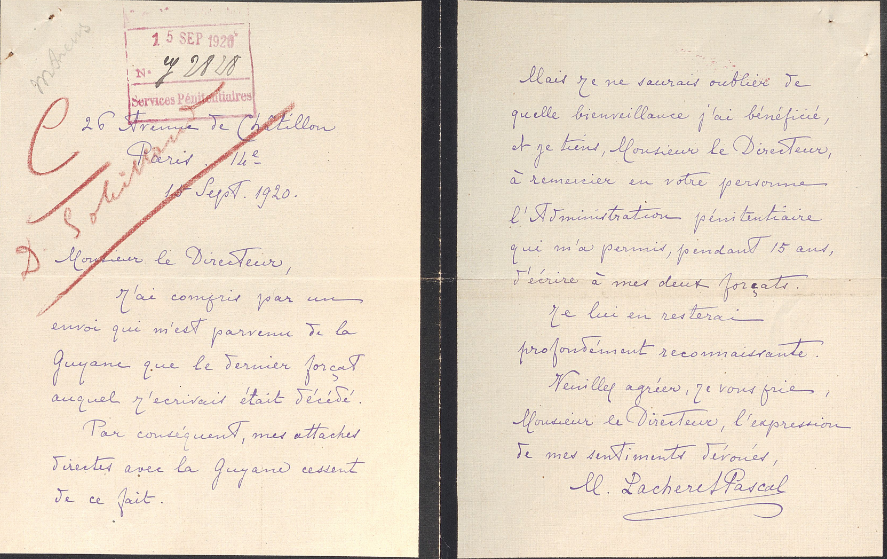 15 SEP 1920
N. 2828
Services Pénitentiaires
26 Avenue de Chatillon
Paris. 14e
15 Sept. 1920.
D
Monsieur le Directeur,
J'ai compris par un
envoi qui m'est parvenu de la
Guyane que le dernier forçat
auquel j'ecrivais était décédé.
Par conséquent, mes attaches
directes avec la Guyane cessent
de ce fait.
Mais je ne saurais oublier de
quelle bienveillance j'ai bénéficié,
et je tiens, Monsieur le Directeur,
à remercier en votre personne
l'Administration pénitentiaire
qui m'a permis, pendant 15 ans,
d'écrire à mes deux forçats.
Je lui en resterai
profondément reconnaissante.
Veuillez agréer, je vous prie,
Monsieur le Directeur, l'expression
de mes sentiments dévoués,
M. Pascal